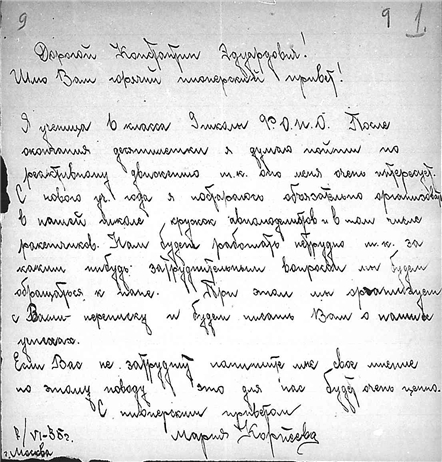 9 9 1.
Дорогой Константин Эдуардович!
Шлю Вам горячий пионерский привет!
Я ученица 6 класса 9 школы О.П.О. После
окончания десятилетки я думаю пойти по
реактивному движению т.к. оно меня очень интересует.
С нового уч. года я постараюсь обязательно организовать
в нашей школе кружок авиамоделистов и в том числе
ракетчиков. Нам будет работать нетрудно т.к. за
каким нибудь затруднительным вопросом мы будем
обращаться к папе. При этом мы организуем
с Вами переписку и будем писать Вам о наших
успехах.
Если Вас не затруднит напишите мне свое мнение
по этому поводу это для нас будет очень ценно.
С пионерским приветом
Мария Корнеева
8/VI-35г.
г. Москва